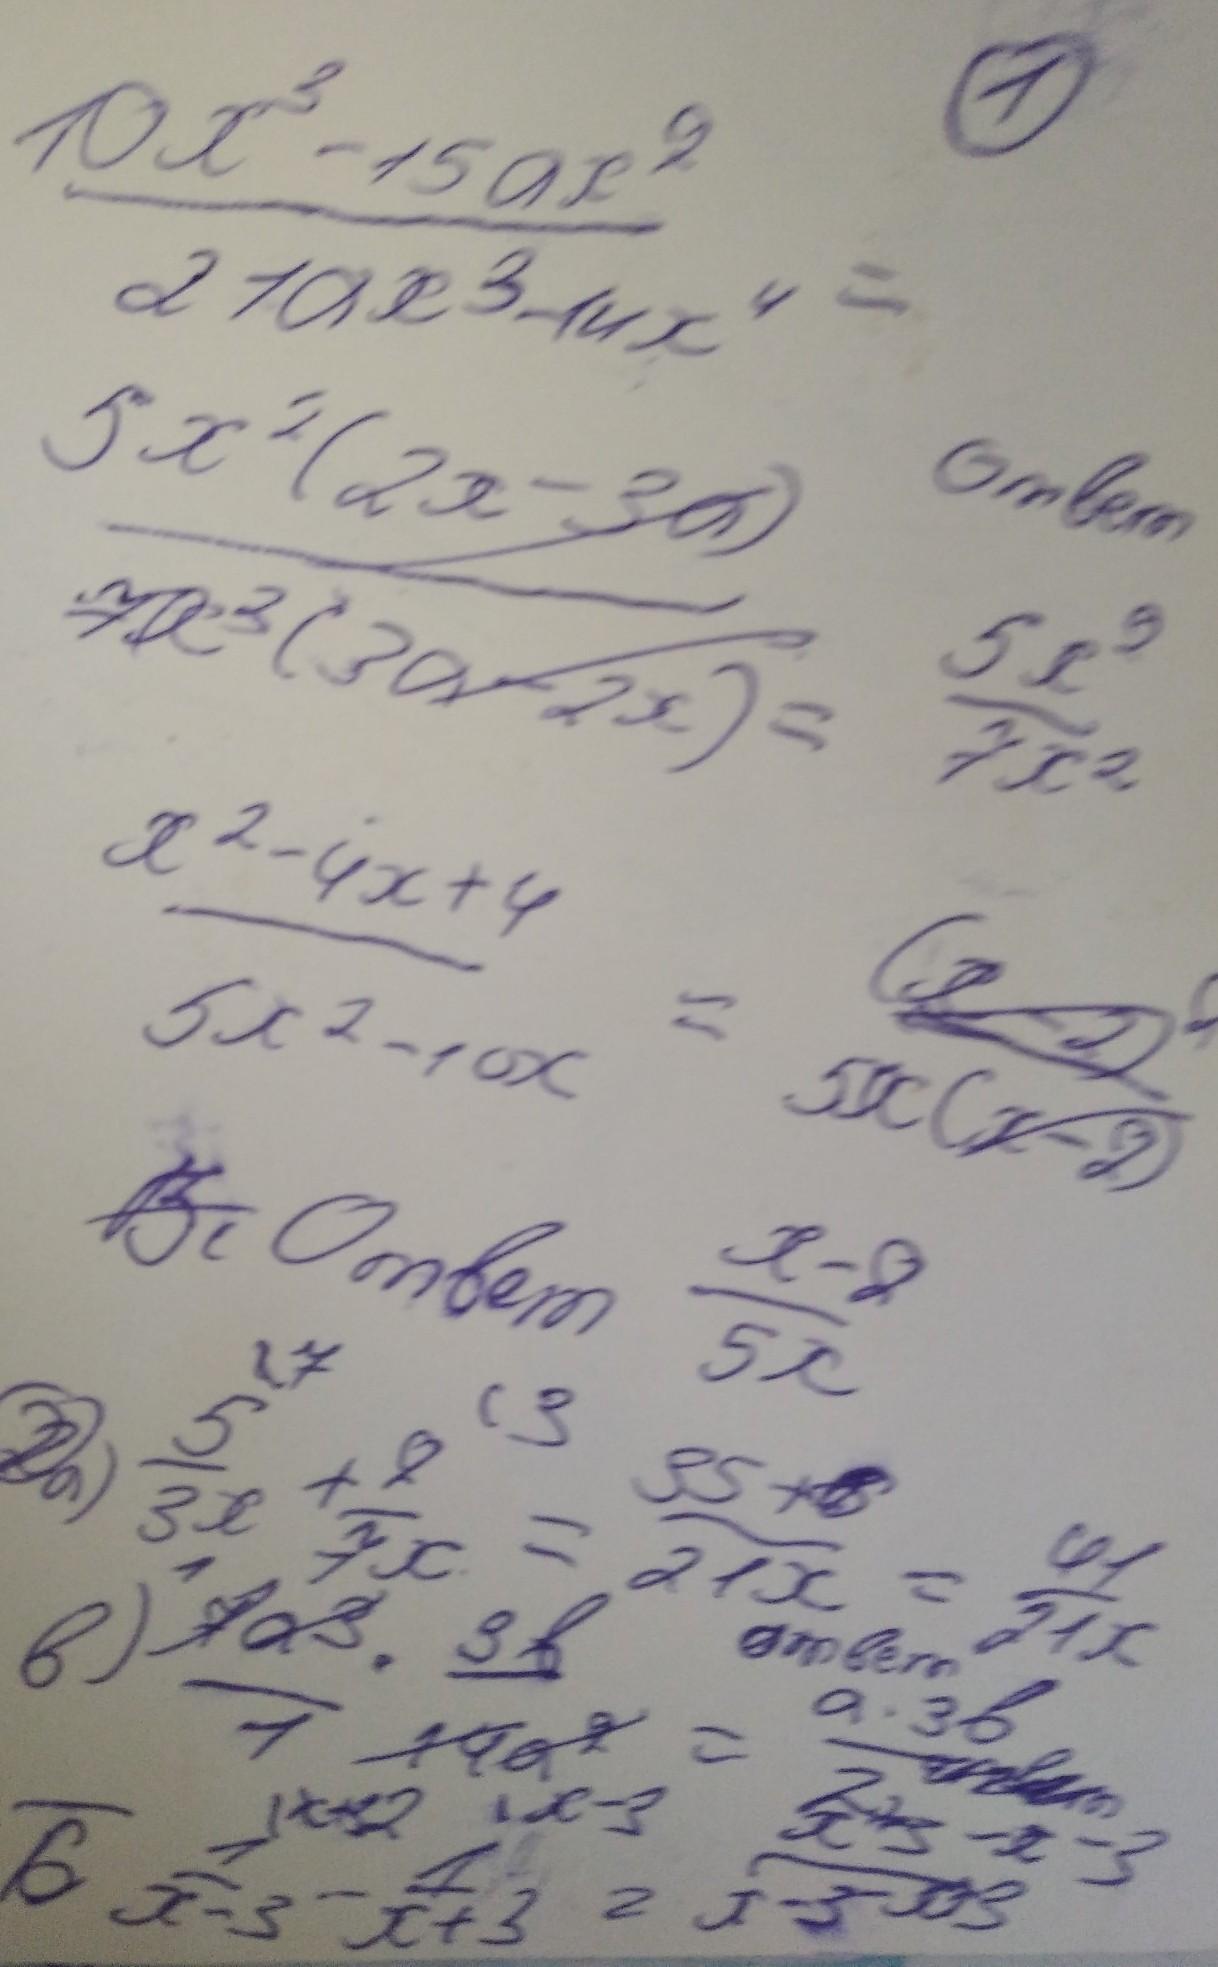 ①
10x³ - 15ax²
21ax³ - 14x⁴ =
5x²(2x - 3a)
7x³(3a - 2x) =
Ответ
5x²
7x²
x² - 4x + 4
5x² - 10x
= (x - 2)²
5x(x - 2)
Ответ x - 2
5x
2 а) 5/3x + 2/7x = 35 + 6/21x = 41/21x
в) 7a³/1 · 3b/14a² = a · 3b/2
ответ
б 1/x-3 - 1/x+3 = x+3 - x - 3/x-3 x+3